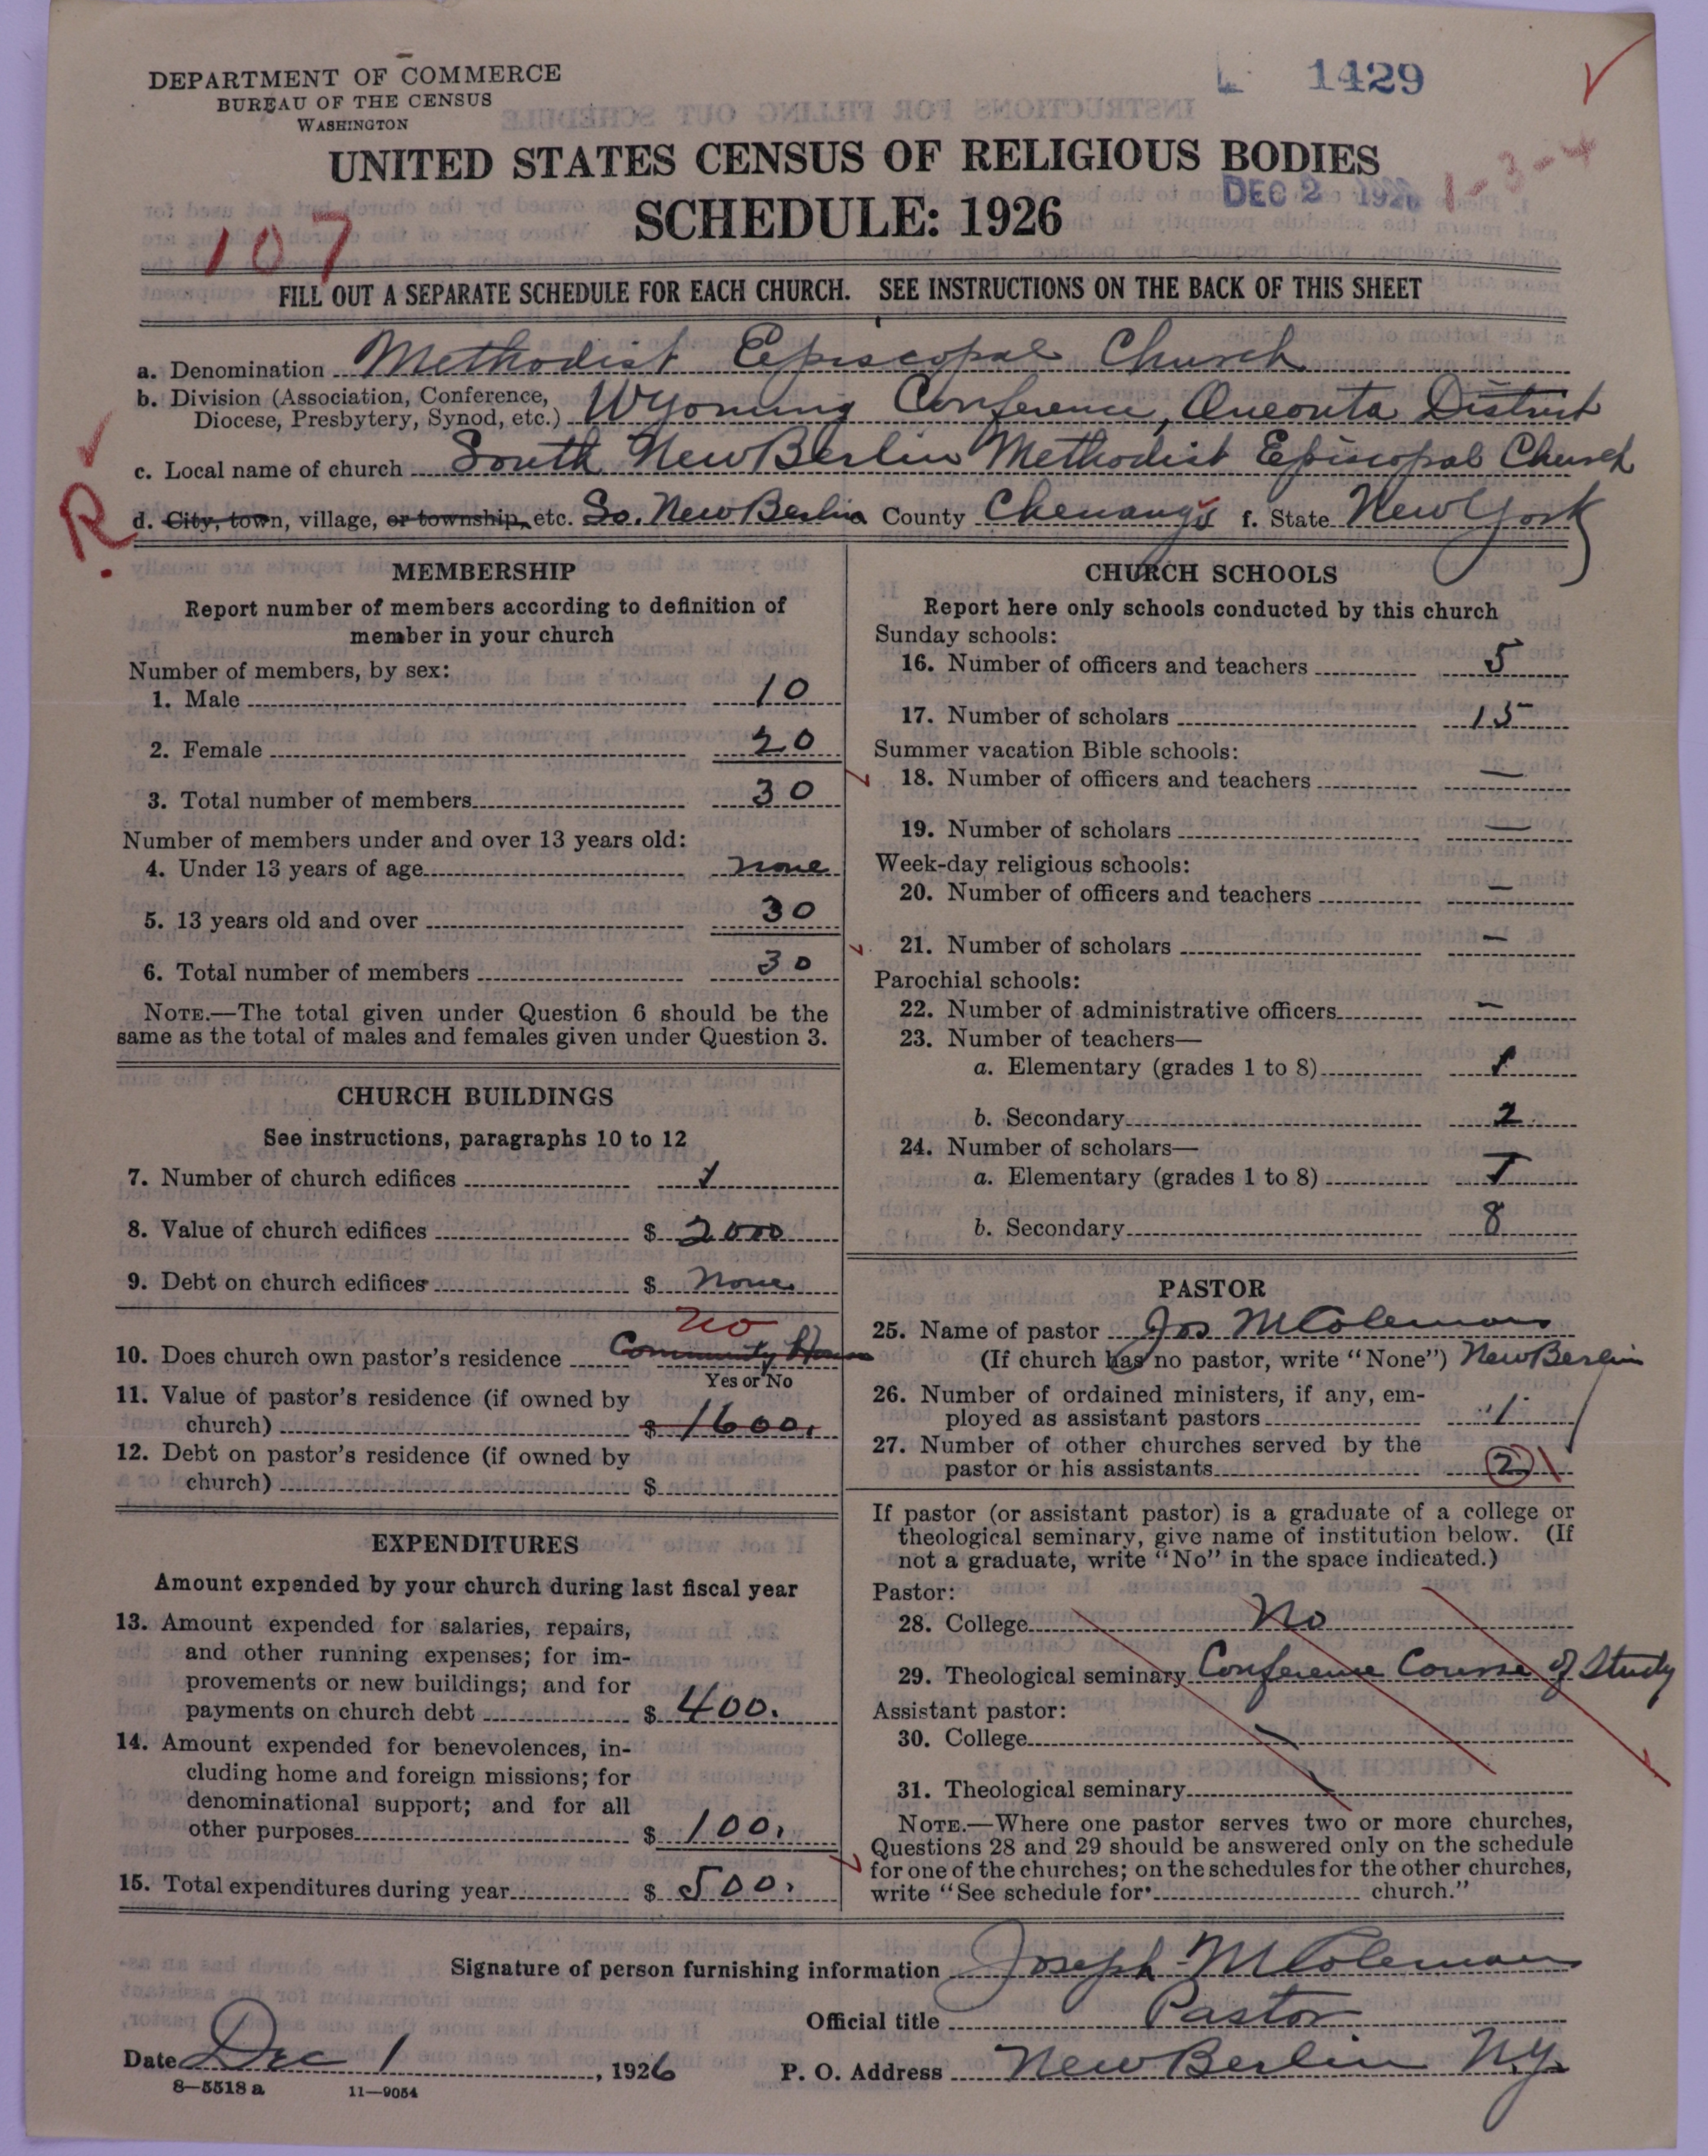 DEPARTMENT OF COMMERCE
BUREAU OF THE CENSUS
WASHINGTON
1429
UNITED STATES CENSUS OF RELIGIOUS BODIES
DEC 2 1926 1-3-4
SCHEDULE: 1926
107
FILL OUT A SEPARATE SCHEDULE FOR EACH CHURCH. SEE INSTRUCTIONS ON THE BACK OF THIS SHEET
a. Denomination Methodist Episcopal Church
b. Division (Association, Conference,
Diocese, Presbytery, Synod, etc.) Wyoming Conference, Oneonta District
c. Local name of church South New Berlin Methodist Episcopal Church
R.
d. City, town, village, or township, etc. So. New Berlin County Chenango f. State New York
MEMBERSHIP
Report number of members according to definition of
member in your church
Number of members, by sex:
1. Male 10
2. Female 20
3. Total number of members 30
Number of members under and over 13 years old:
4. Under 13 years of age none
5. 13 years old and over 30
6. Total number of members 30
NOTE.—The total given under Question 6 should be the
same as the total of males and females given under Question 3.
CHURCH BUILDINGS
See instructions, paragraphs 10 to 12
7. Number of church edifices 1
8. Value of church edifices $ 2000
9. Debt on church edifices $ None
No
10. Does church own pastor's residence Community House
Yes or No
11. Value of pastor's residence (if owned by
church) $ 1600.
12. Debt on pastor's residence (if owned by
church) $
EXPENDITURES
Amount expended by your church during last fiscal year
13. Amount expended for salaries, repairs,
and other running expenses; for im-
provements or new buildings; and for
payments on church debt $ 400.
14. Amount expended for benevolences, in-
cluding home and foreign missions; for
denominational support; and for all
other purposes $ 100.
15. Total expenditures during year $ 500.
CHURCH SCHOOLS
Report here only schools conducted by this church
Sunday schools:
16. Number of officers and teachers 5
17. Number of scholars 15
Summer vacation Bible schools:
18. Number of officers and teachers —
19. Number of scholars —
Week-day religious schools:
20. Number of officers and teachers —
21. Number of scholars —
Parochial schools:
22. Number of administrative officers —
23. Number of teachers—
a. Elementary (grades 1 to 8)
b. Secondary 2
24. Number of scholars—
a. Elementary (grades 1 to 8)
b. Secondary 8
PASTOR
25. Name of pastor Jos M Coleman
(If church has no pastor, write "None") New Berlin
26. Number of ordained ministers, if any, em-
ployed as assistant pastors 1
27. Number of other churches served by the
pastor or his assistants 2
If pastor (or assistant pastor) is a graduate of a college or
theological seminary, give name of institution below. (If
not a graduate, write "No" in the space indicated.)
Pastor:
28. College No
29. Theological seminary Conference Course of Study
Assistant pastor:
30. College
31. Theological seminary
NOTE.—Where one pastor serves two or more churches,
Questions 28 and 29 should be answered only on the schedule
for one of the churches; on the schedules for the other churches,
write "See schedule for church."
Signature of person furnishing information Joseph M Coleman
Official title Pastor
Date Dec 1, 1926 P. O. Address New Berlin N.Y.
8-5518 a 11-9054